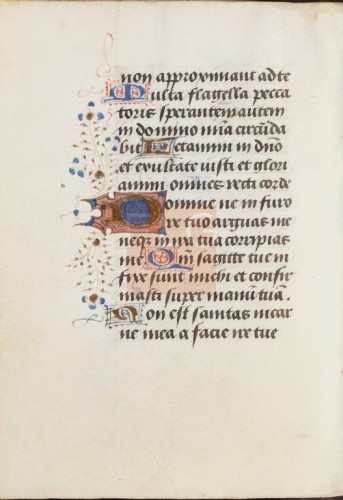 non approximant ad te
Multa flagella pecca
toris sperantem autem
in domino mīa circūda
bit Letamini in dn̄o
et exultate iusti et glori
amini omnes recti corde
Domine ne in furo
re tuo arguas me
neq̨ in ira tua corripias
me Qm̄ sagitte tue in
fixe sunt michi et confir
masti super me manū tuā.
Non est sanitas in car
ne mea a facie ire tue